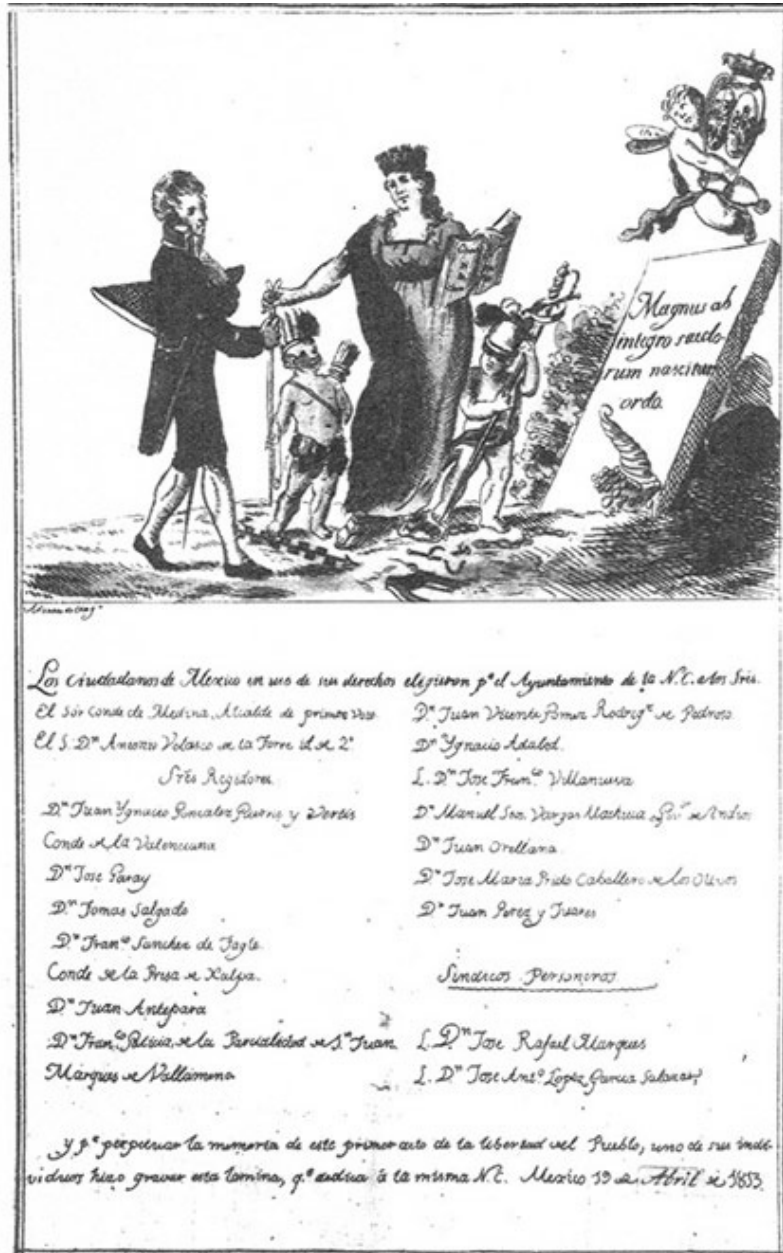 Magnus ab
integro saeclo-
rum nascitur
ordo.
Los Ciudadanos de Mexico en uso de sus derechos eligieron pª el Ayuntamiento de la N.C. a los Sres.
El Sör Conde de Medina, Alcalde de primer Voto.
El S. Dⁿ Antonio Velasco de la Torre id. de 2º
Sres Regidores.
Dⁿ Juan Ygnacio Gonzalez Guerra y Vertis
Conde de la Valenciana
Dⁿ Jose Garay
Dⁿ Tomas Salgado
Dⁿ Franco Sanchez de Tagle.
Conde de la Presa de Xalpa.
Dⁿ Juan Antepara
Dⁿ Franco Galicia, de la Parcialidad de Sⁿ Juan
Marques de Vallamena
Dⁿ Juan Vicente Gomez Rodrigz de Pedroso
Dⁿ Ygnacio Adalod.
L. Dⁿ Jose Franco Villanueva
Dⁿ Manuel Vargas Machuca de
Dⁿ Juan Orellana
Dⁿ Jose Maria Prieto Caballero de los Olivos
Dⁿ Juan Perez y Juares
Sindicos Personeros
L. Dⁿ Jose Rafael Marques
L. Dⁿ Jose Antº Lopez Garcia Salazar
y pª perpetuar la memoria de este primer acto de la libertad del Pueblo, uno de sus indi-
viduos hizo gravar esta lamina, q.e dedica à la misma N.C. Mexico 19 de Abril de